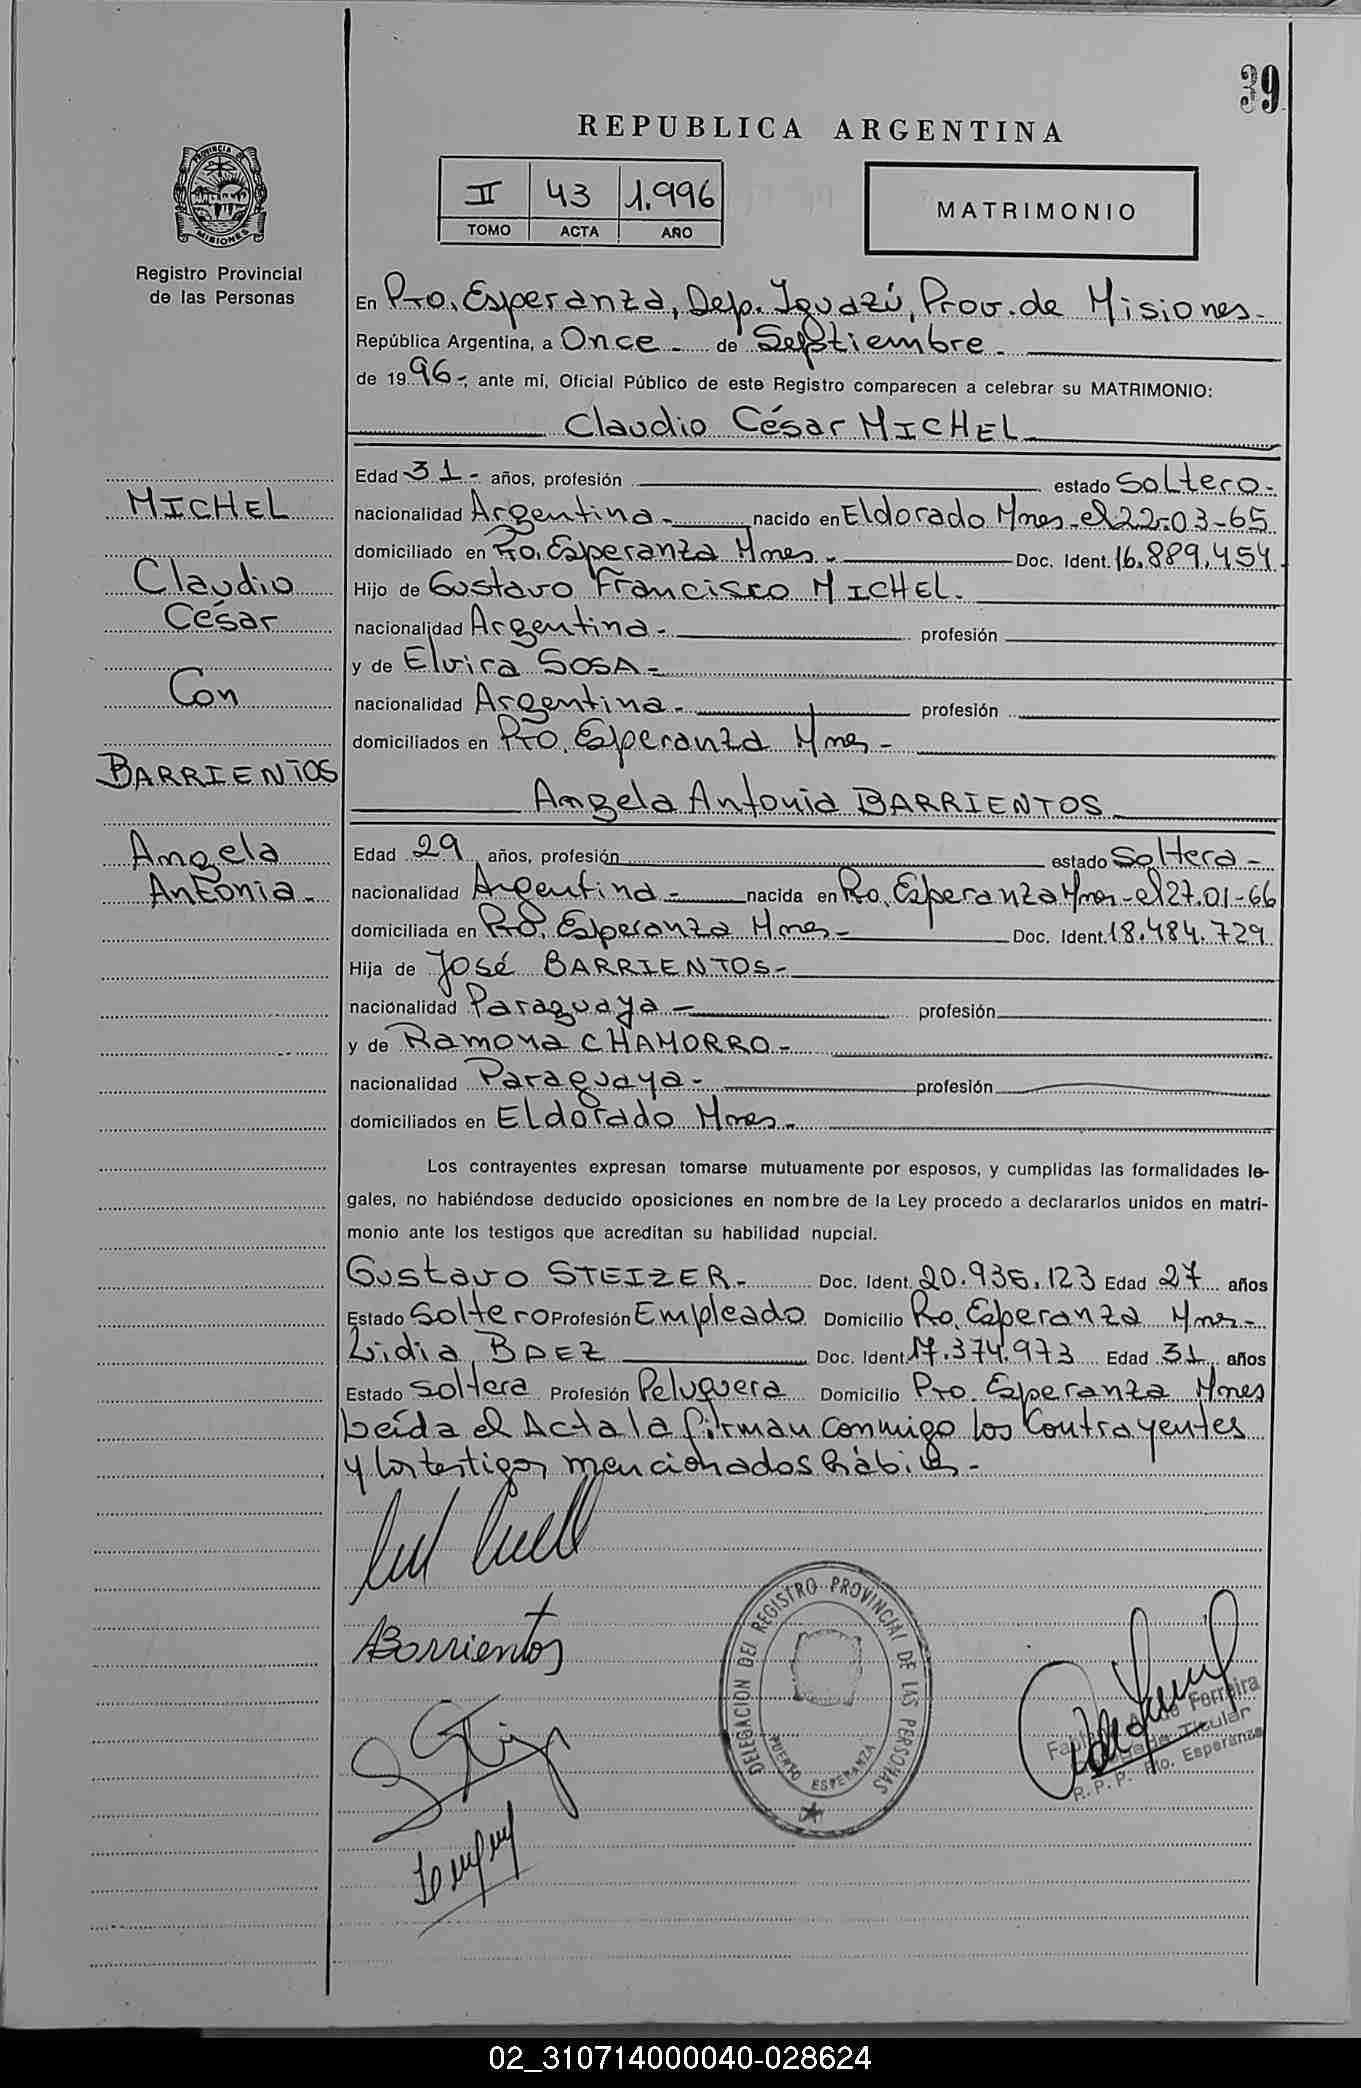 39
REPUBLICA ARGENTINA
II 43 1.996
TOMO ACTA AÑO
MATRIMONIO
PROVINCIA DE MISIONES
Registro Provincial
de las Personas
En Pto. Esperanza, Dep. Iguazú, Prov. de Misiones-
República Argentina, a Once - de Septiembre -
de 1996-, ante mí, Oficial Público de este Registro comparecen a celebrar su MATRIMONIO:
Claudio César MICHEL
Edad 31- años, profesión estado Soltero-
nacionalidad Argentina- nacido en Eldorado Mnes-el 22-03-65
domiciliado en Pto. Esperanza Mnes- Doc. Ident. 16.889.454
Hijo de Gustavo Francisco MICHEL.
nacionalidad Argentina- profesión
y de Elvira SOSA-
nacionalidad Argentina- profesión
domiciliados en Pto. Esperanza Mnes-
Angela Antonia BARRIENTOS
Edad 29 años, profesión estado Soltera-
nacionalidad Argentina- nacida en Pto. Esperanza Mnes-el 27.01-66
domiciliada en Pto. Esperanza Mnes- Doc. Ident. 18.484.729
Hija de José BARRIENTOS-
nacionalidad Paraguaya- profesión
y de Ramona CHAMORRO-
nacionalidad Paraguaya- profesión
domiciliados en Eldorado Mnes-
MICHEL
Claudio
César
Con
BARRIENTOS
Angela
Antonia-
Los contrayentes expresan tomarse mutuamente por esposos, y cumplidas las formalidades le-
gales, no habiéndose deducido oposiciones en nombre de la Ley procedo a declararlos unidos en matri-
monio ante los testigos que acreditan su habilidad nupcial.
Gustavo STEIZER- Doc. Ident. 20.936.123 Edad 27 años
Estado Soltero Profesión Empleado Domicilio Pto. Esperanza Mnes-
Lidia BAEZ Doc. Ident. 17.374.973 Edad 31 años
Estado Soltera Profesión Peluquera Domicilio Pto. Esperanza Mnes
Leída el Acta la firman conmigo los Contrayentes
y los testigos mencionados hábiles-
ABarrientos
DELEGACION DEL REGISTRO PROVINCIAL DE LAS PERSONAS
PUERTO ESPERANZA
Ferreira
Titular
R. P. P. Pto. Esperanza
02_310714000040-028624